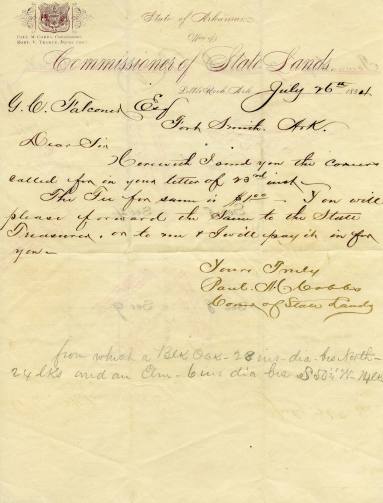 State of Arkansas
Office of
Commissioner of State Lands.
Paul M. Cobbs, Commissioner
Little Rock, Ark July 26th 1884
G. C. Falconer Esq
Fort Smith, Ark.
Dear Sir
Herewith I send you the corners
called for in your letter of 23rd inst.
The Fee for same is $1.00 - You will
please forward the same to the State
Treasurer, or to me & I will pay it in for
you -
Yours Truly
Paul M Cobbs
Comr of State Lands
from which a Blk Oak - 28 ins - dia - brs North -
24 lks and an Elm - 6 ins dia brs S 50½ W - 14 lks